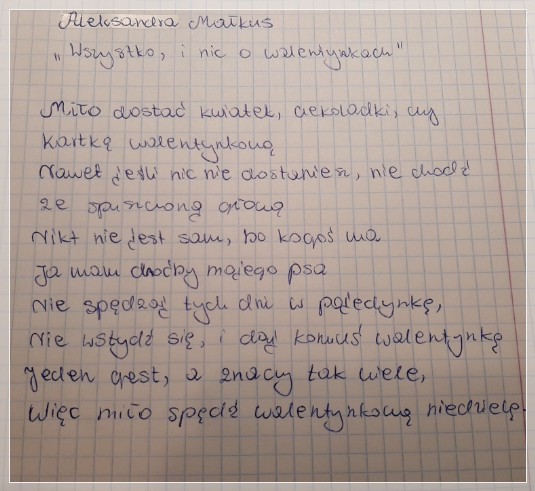 Aleksandra Małkus
„Wszystko, i nic o walentynkach"
Miło dostać kwiatek, czekoladki, czy
kartkę walentynkową
Nawet jeśli nic nie dostaniesz, nie chodź
ze spuszczoną głową
Nikt nie jest sam, bo kogoś ma
Ja mam choćby mojego psa
Nie spędzaj tych dni w pojedynkę,
Nie wstydź się, i daj komuś walentynkę
Jeden gest, a znaczy tak wiele,
Więc miło spędź walentynkową niedzielę.